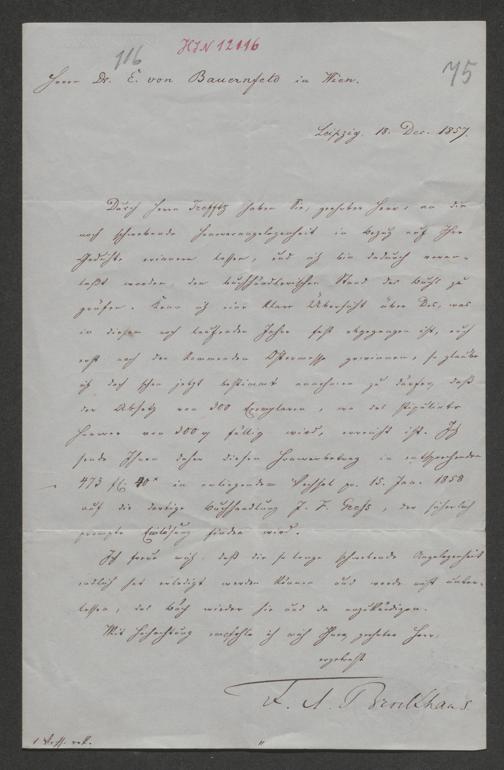 116
HIN 12016
75
Herrn Dr. E. von Bauernfeld in Wien.
Leipzig, 18. Dec. 1857.
Durch Herrn haben Sie, geehrter Herr, an die
noch schwebende Honorarangelegenheit in Bezug auf Ihre
Gedichte erinnern lassen, und ich bin dadurch veran-
laßt worden den buchhändlerischen Stand des Buchs zu
prüfen. Kann ich eine klare Übersicht über Das, was
in diesem noch laufenden Jahre fest abgegangen ist, auch
erst nach der kommenden Ostermesse gewinnen, so glaube
ich doch schon jetzt bestimmt annehmen zu dürfen daß
der Absatz von Exemplaren, wo das stipulirte
Honorar von fällig wird, erreicht ist. Ich
sende Ihnen daher diesen Honorarbetrag in entsprechenden
473 fl. 40 x in anliegendem Wechsel pr. 15. Jan. 1858
auf die dortige Buchhandlung J. F. Greß, der sicherlich
prompte Einlösung finden wird.
Ich freue mich, daß die so lange schwebende Angelegenheit
endlich hat erledigt werden können und werde nicht unter-
lassen, das Buch wieder hie und da anzukündigen.
Mit Hochachtung empfehle ich mich Ihnen geehrter Herr,
ergebenst
F. A. Brockhaus